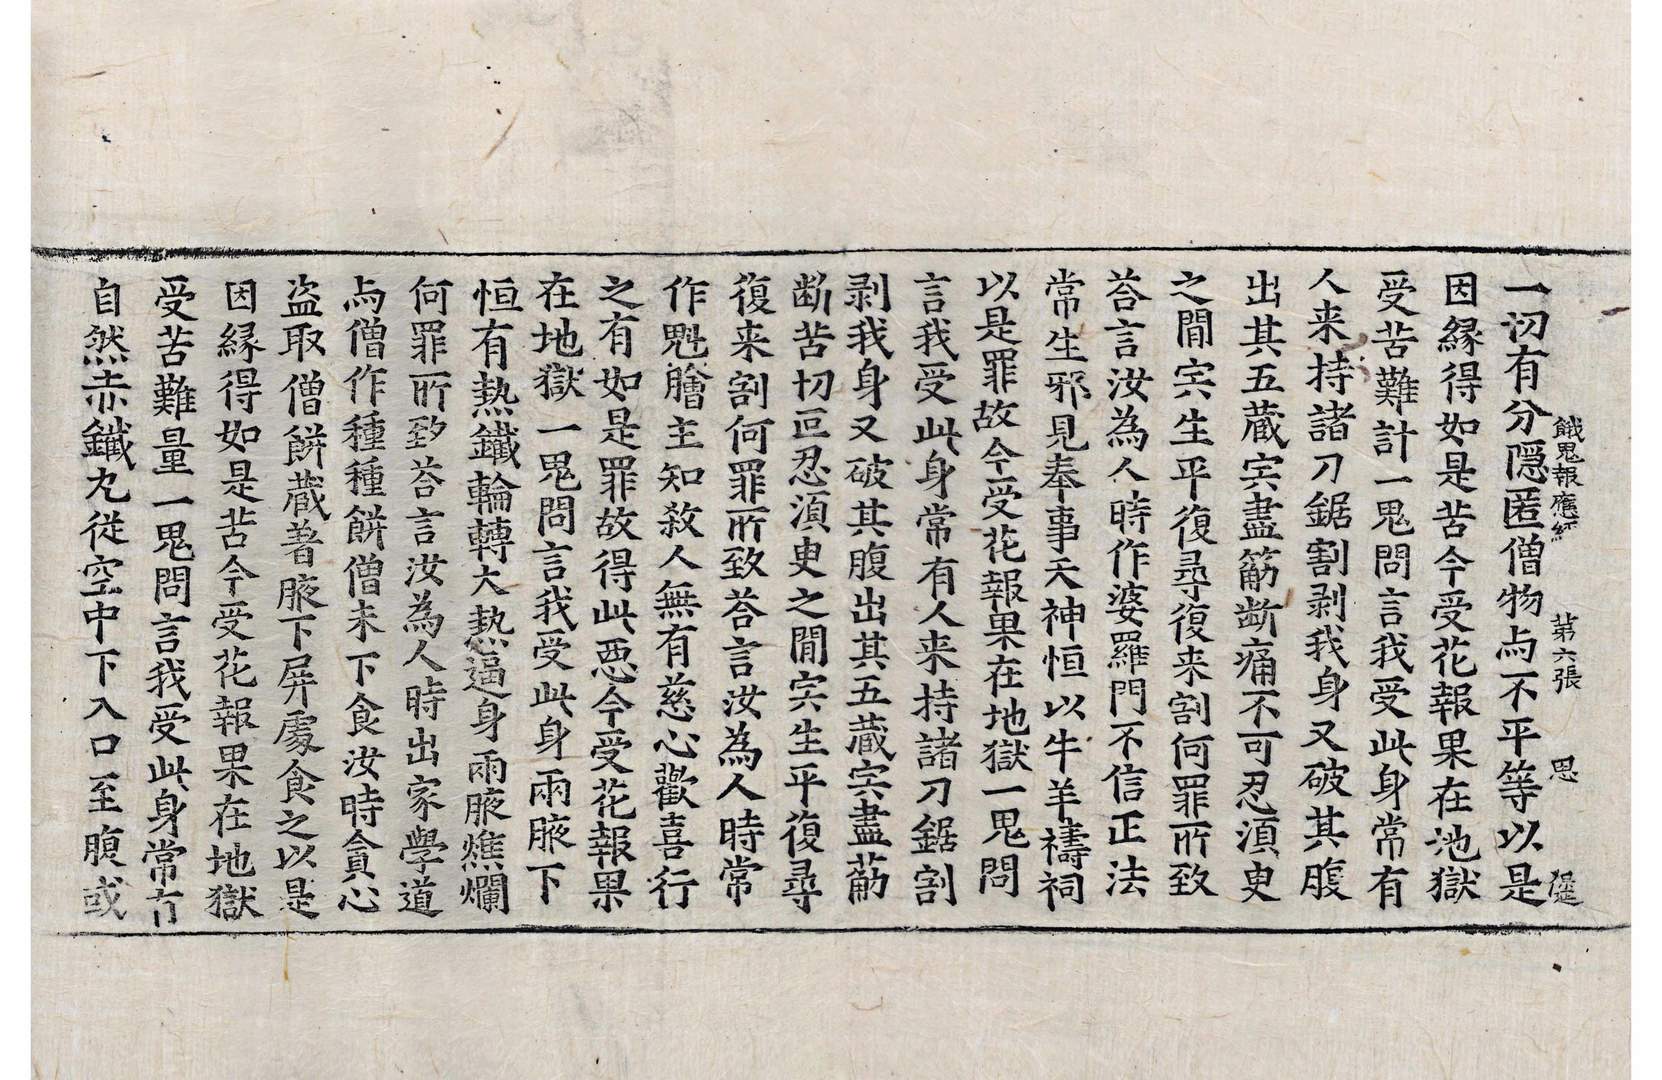 餓鬼報應經 第六張 思
一切有分隱匿僧物与不平等以是
因縁得如是苦今受花報果在地獄
受苦難計一鬼問言我受此身常有
人来持諸刀鋸割剥我身又破其腹
出其五蔵宍盡筋断痛不可忍湏臾
之閒宍生平復尋復来割何罪所致
荅言汝為人時作婆羅門不信正法
常生邪見奉事天神恒以牛羊禱祠
以是罪故今受花報果在地獄一鬼問
言我受此身常有人来持諸刀鋸割
剥我身又破其腹出其五蔵宍盡筋
断苦切叵忍湏臾之閒宍生平復尋
復来割何罪所致荅言汝為人時常
作魁膾主知敎人無有慈心歡喜行
之有如是罪故得此惡今受花報果
在地獄一鬼問言我受此身兩腋下
恒有熱鐵輪轉大熱逼身兩腋燋爛
何罪所致荅言汝為人時出家學道
与僧作種種餅僧未下食汝時貪心
盗取僧餅蔵著腋下屏處食之以是
因縁得如是苦今受花報果在地獄
受苦難量一鬼問言我受此身常有
自然赤鐵丸従空中下入口至腹或